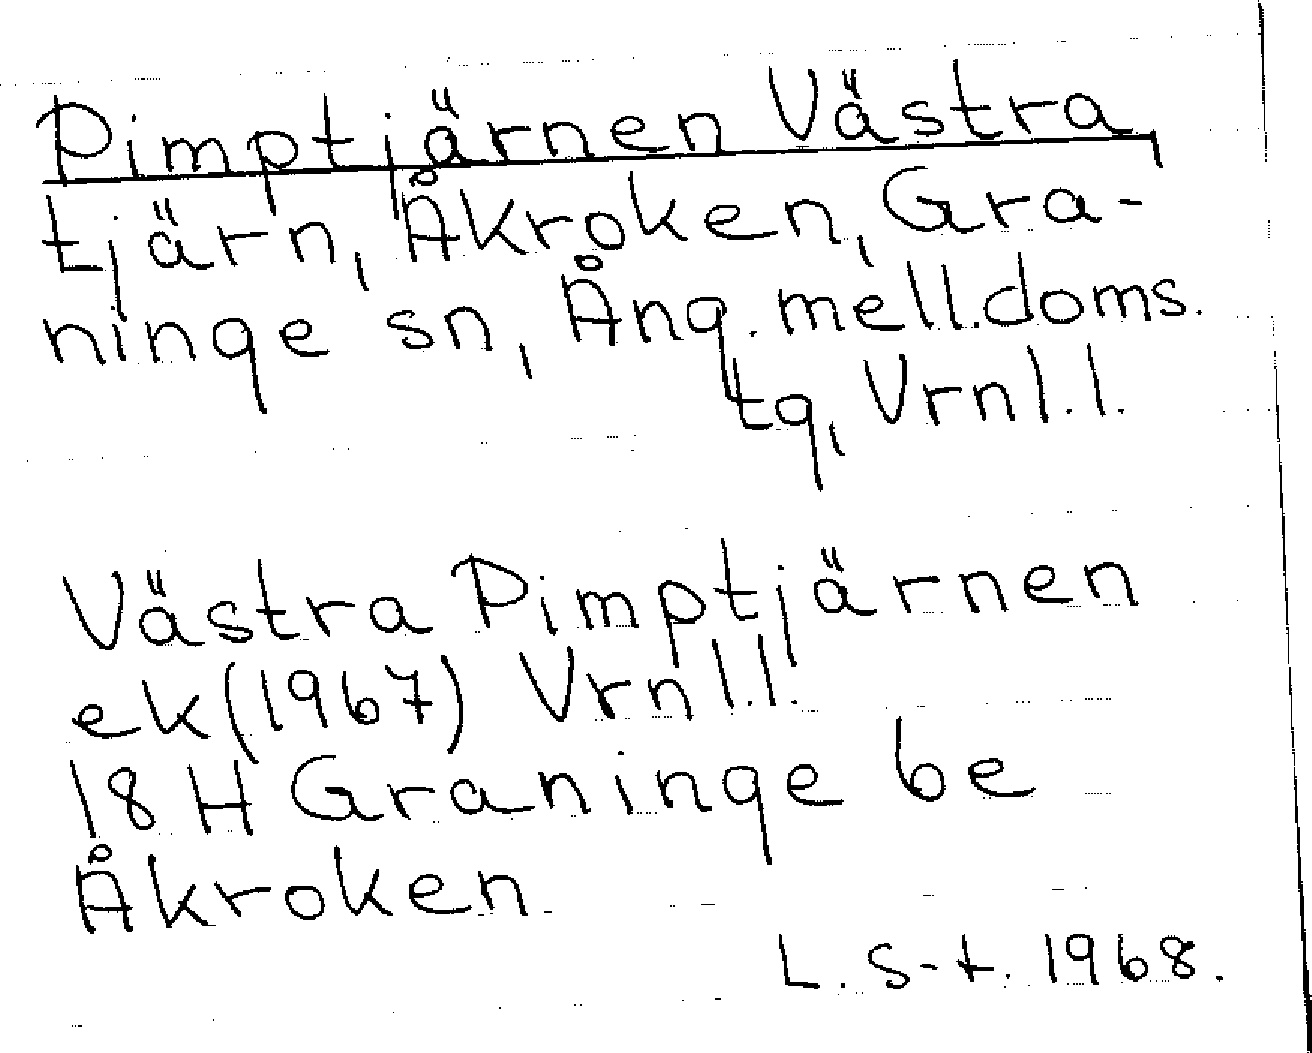 Pimptjärnen Västra,
tjärn, Åkroken, Gra-
ninge sn, Ång. mell.doms.
tg, Vrnl.l.
Västra Pimptjärnen
ek(1967) Vrnl.l.
18 H Graninge 6e
Åkroken
L. S-t. 1968.